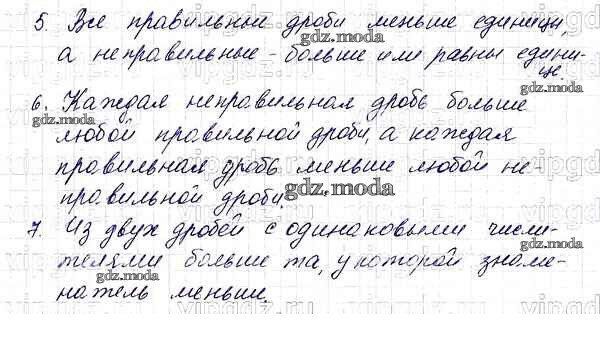 5. Все правильные дроби меньше единицы,
а неправильные - больше или равны едини-
це.
6. Каждая неправильная дробь больше
любой правильной дроби, а каждая
правильная дробь меньше любой не-
правильной дроби.
7. Из двух дробей с одинаковыми числи-
телями больше та, у которой знаме-
натель меньше.
gdz.moda
gdz.moda
gdz.moda
gdz.moda
gdz.moda
gdz.moda
gdz.moda